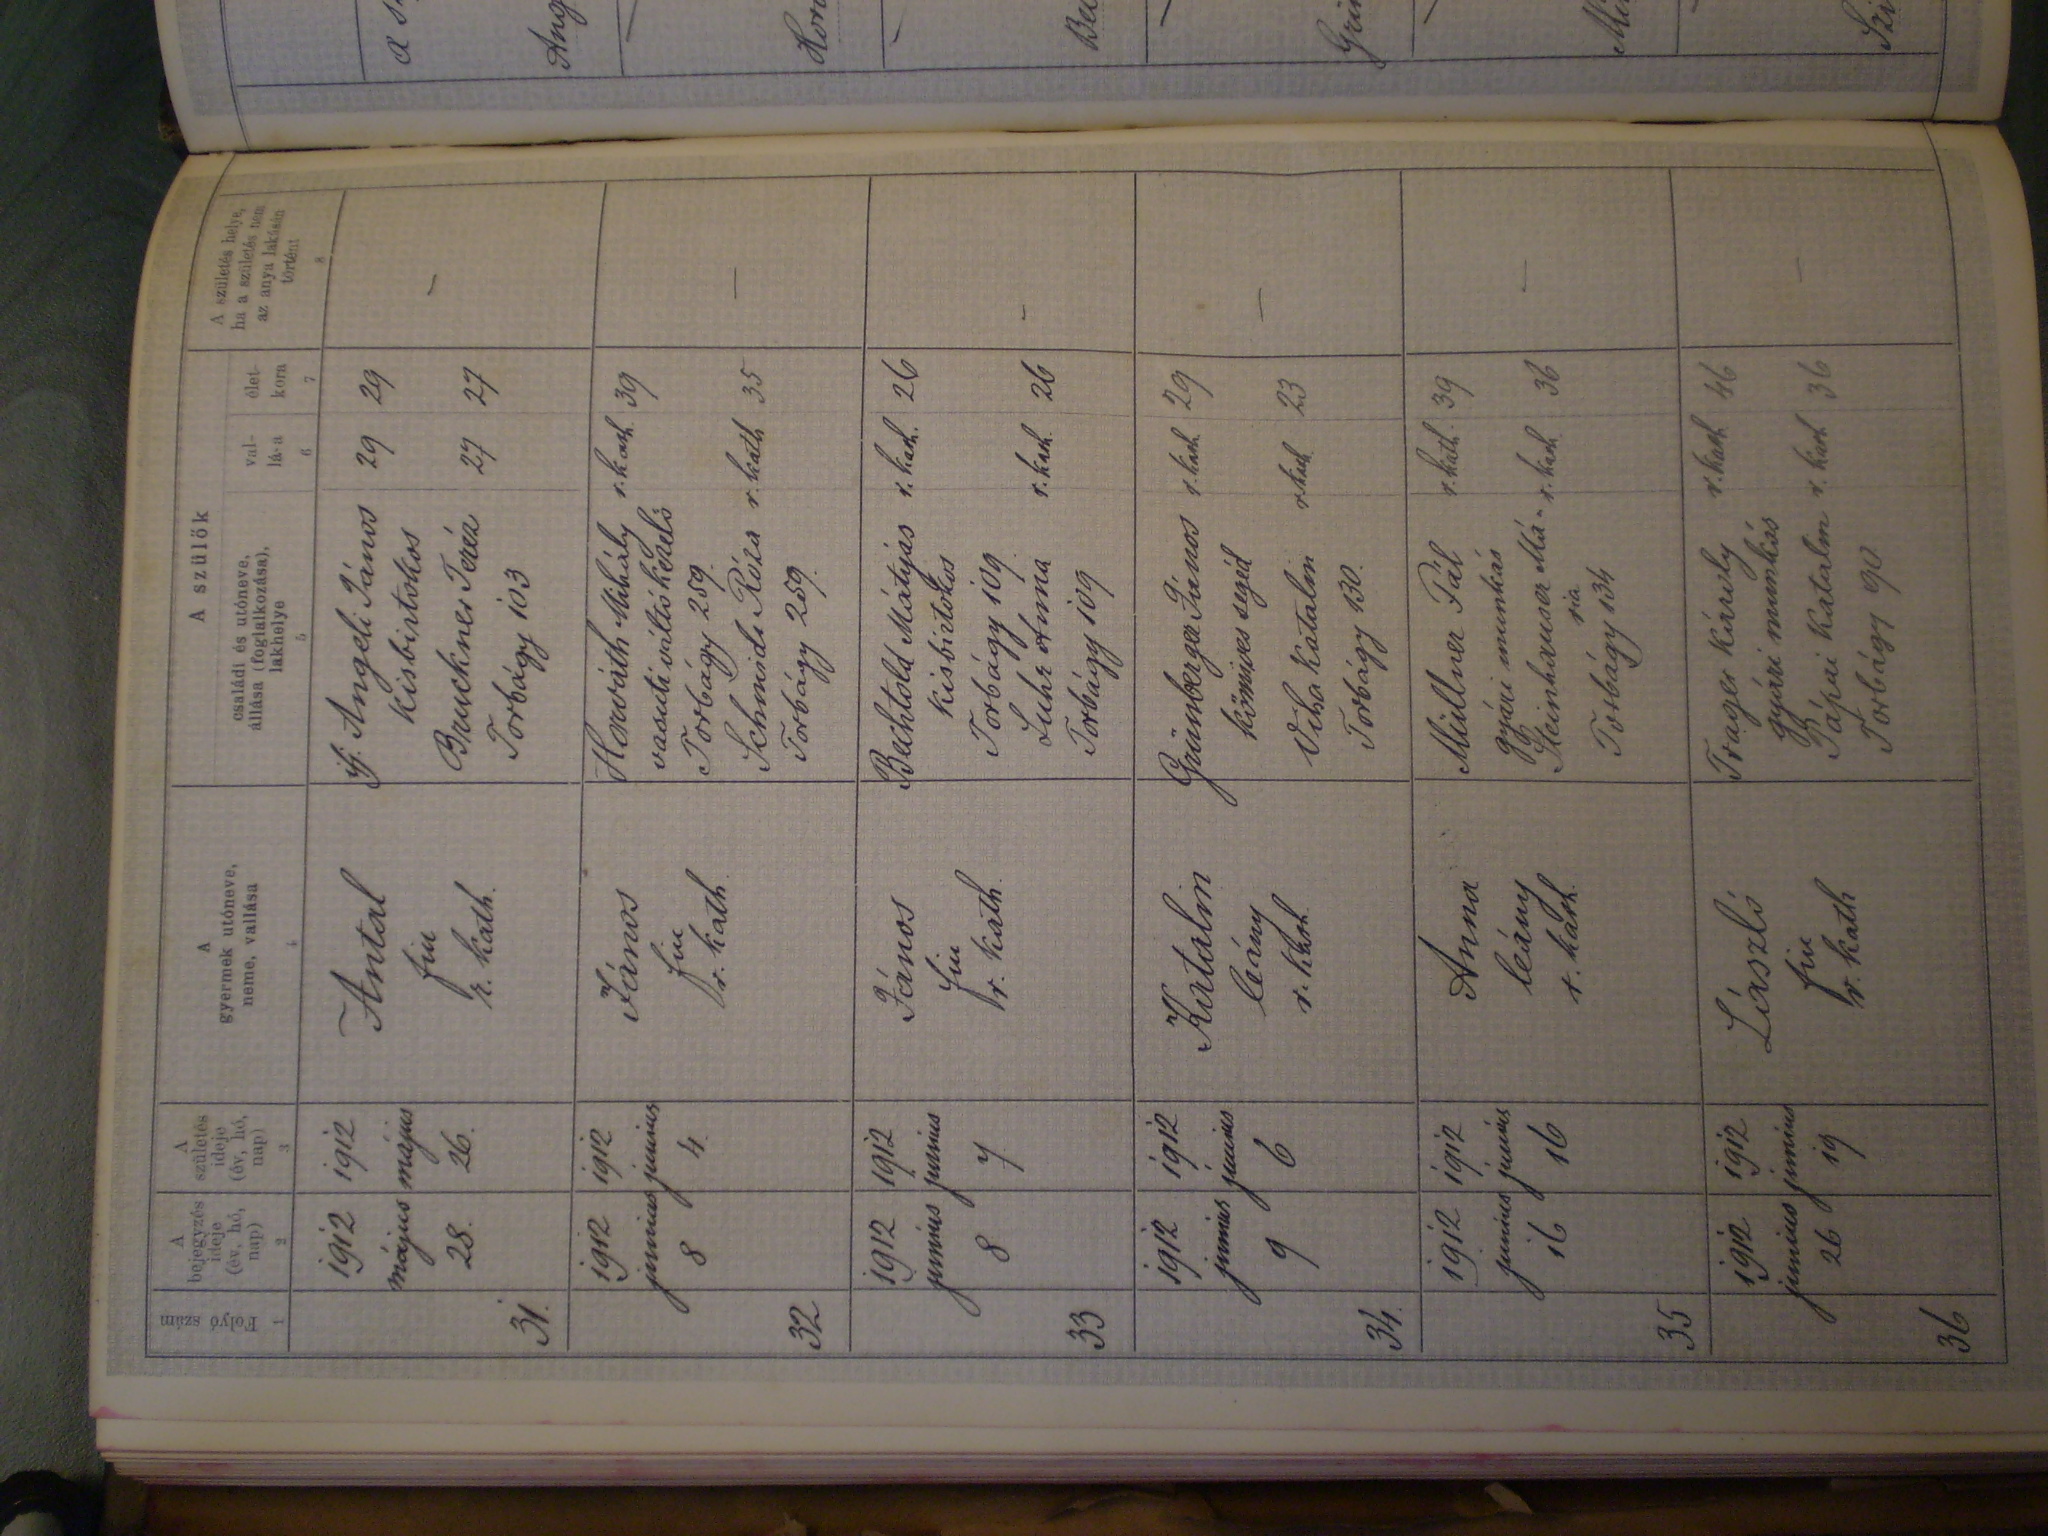 Folyó szám
1
A
bejegyzés
ideje
(év, hó,
nap)
2
A
születés
ideje
(év, hó,
nap)
3
A
gyermek utóneve,
neme, vallása
4
A szülők
családi és utóneve,
állása (foglalkozása),
lakhelye
5
val-
lása
6
élet-
kora
7
A születés helye,
ha a születés nem
az anya lakásán
történt
8
31.
1912
május
28.
1912
május
26.
Antal
fiu
r. kath.
ifj. Angeli János 29 29
kisbirtokos
Bruckner Teréz 27 27
Torbágy 103
—
32
1912
junius
8
1912
junius
4.
János
fiu
r. kath
Horváth Mihály r. kath 39
vasuti váltókezelő
Torbágy 259.
Schmidt Róza r. kath 35
Torbágy 259.
—
33
1912
junius
8
1912
junius
7
János
fiu
r. kath
Bechtold Mátyás r. kath. 26
kisbirtokos
Torbágy 109
Luhr Anna r. kath. 26
Torbágy 109
—
34.
1912
junius
9
1912
junius
6
Katalin
leány
r. kath.
Grünberger János r. kath 29
kőmives segéd
Viha Katalin r. kath 23
Torbágy 130.
—
35
1912
junius
16
1912
junius
16
Anna
leány
r. kath.
Millner Pál r. kath. 39
gyári munkás
Steinhauser Má- r. kath 36
ria
Torbágy 134
—
36
1912
junius
26
1912
junius
19
László
fiu
r. kath
Trager Károly r. kath 46
gyári munkás
Pápai Katalin r. kath 36
Torbágy 90
—
a sz
Ang
Horv
Be
Grün
Mi